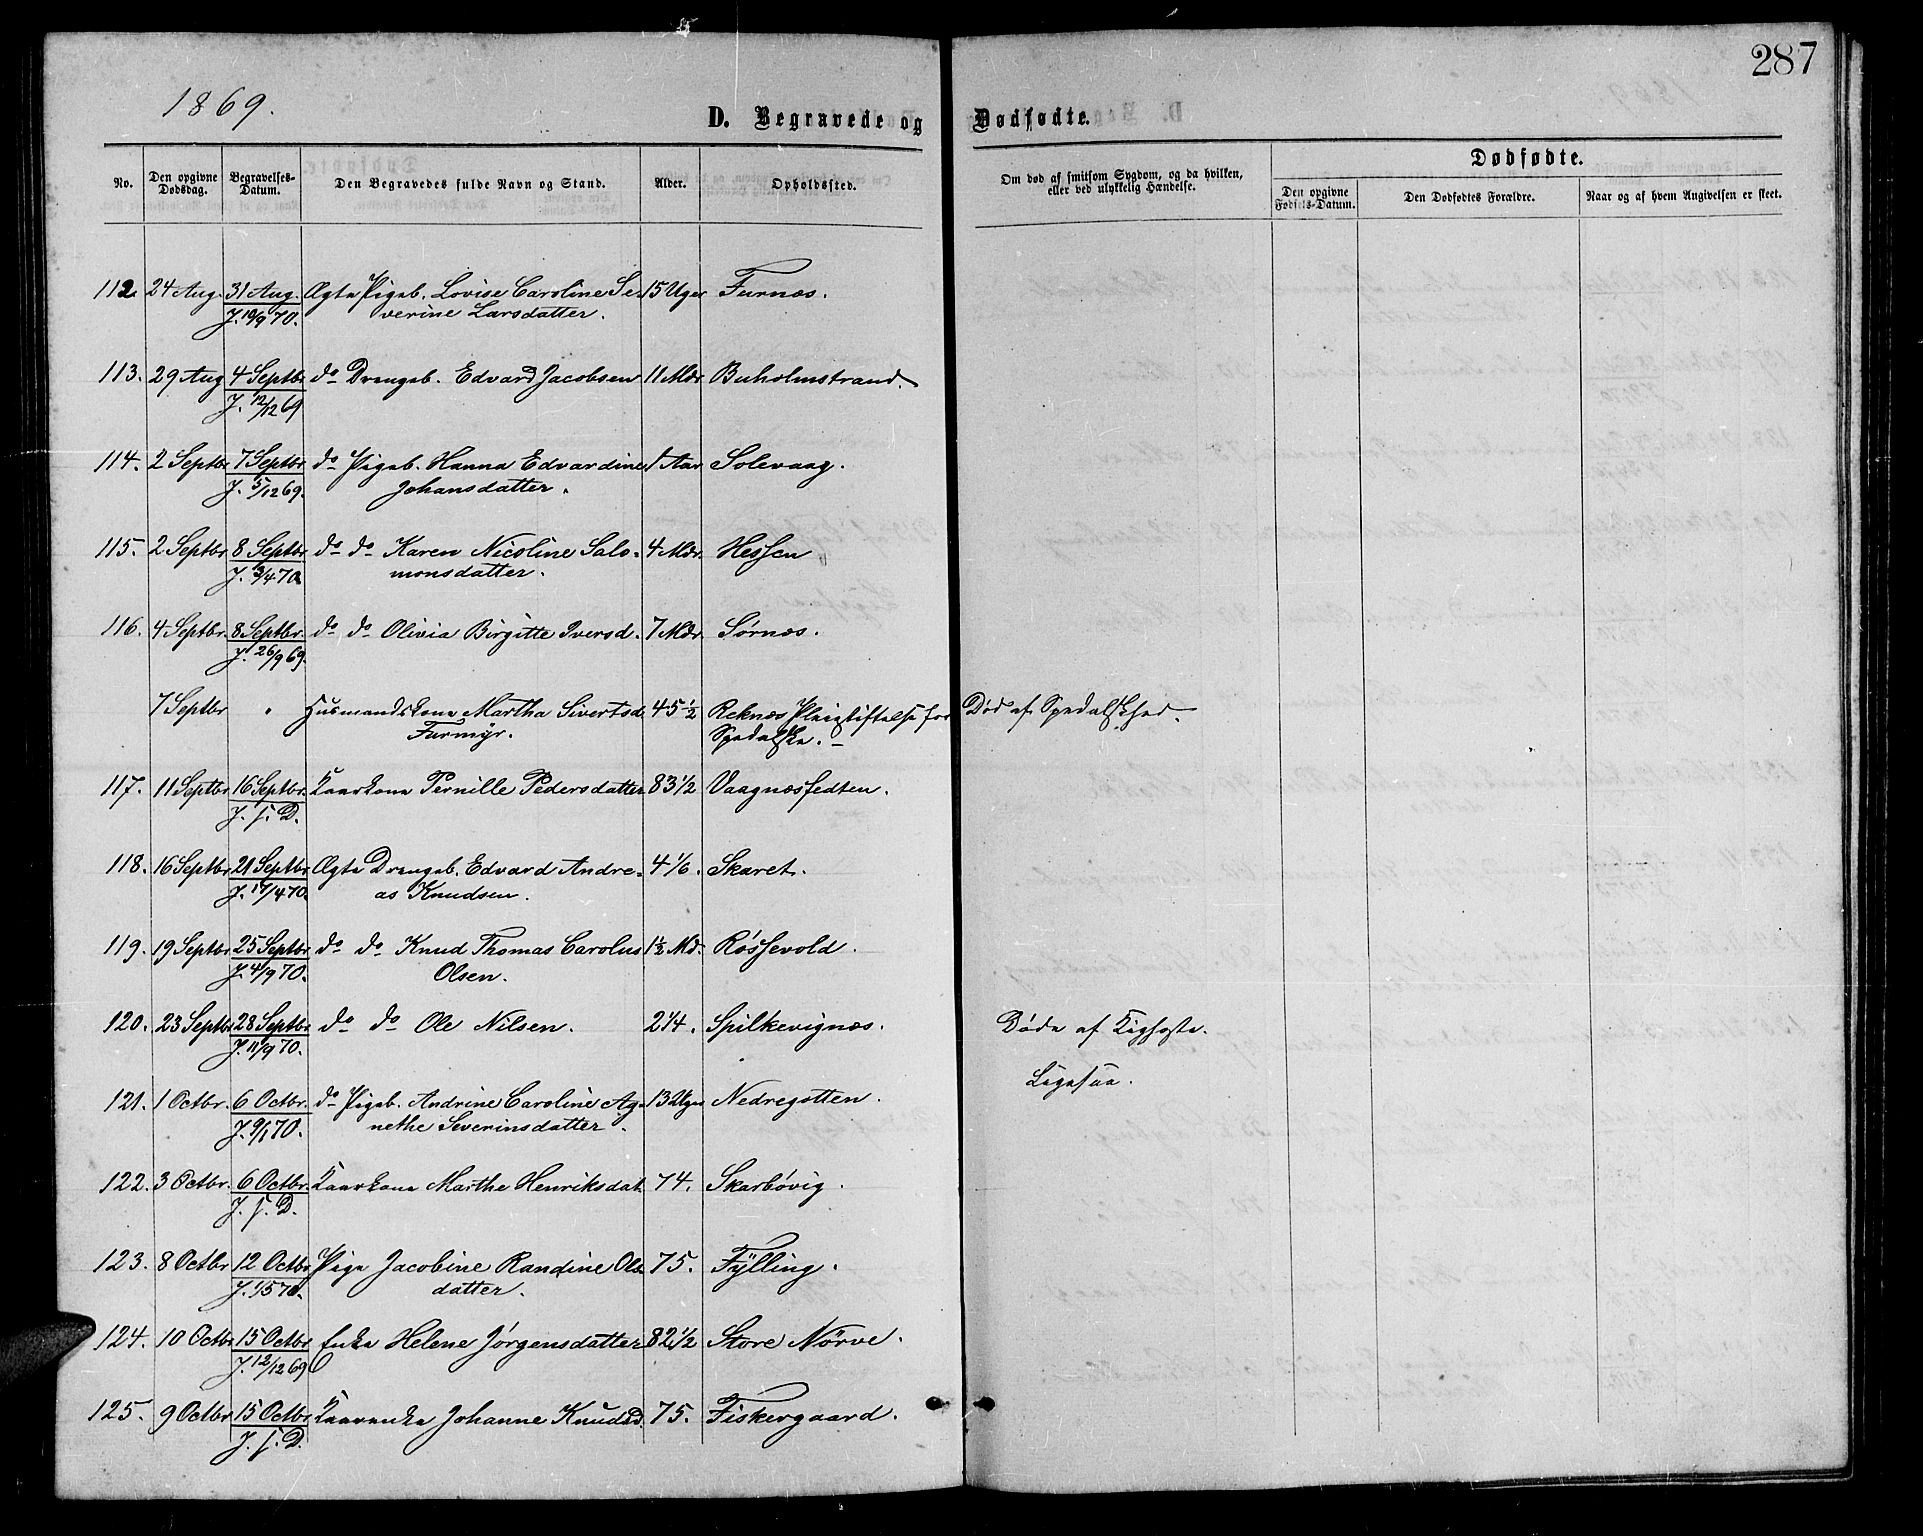 287
1869.
D. Begravede og Dødfødte.
No. Den opgivne Dødsdag. Begravelses-Datum. Den Begravedes fulde Navn og Stand. Alder. Opholdssted. Om død af smitsom Sygdom, og da hvilken, eller ved ulykkelig Hændelse. Dødfødte.
Den opgivne Fødsels-Datum. Den Dødfødtes Forældre. Naar og af hvem Angivelsen er skeet.
112. 24 Aug. 31 Aug. Ægte Pigeb. Lovise Caroline Se- 15 Uger Furnæs.
J. 10/9 70. verine Larsdatter.
113. 29 Aug 4 Septbr do Drengeb. Edvard Jacobsen 11 Mdr. Buholmstrand.
J. 12/12 69
114. 2 Septbr 7 Septbr do Pigeb. Hanna Edvardine 1 Aar Solevaag.
J. 5/12 69. Johansdatter.
115. 2 Septbr 8 Septbr do do Karen Nicoline Salo- 4 Mdr. Hessen
J. 3/4 70. monsdatter.
116. 4 Septbr. 8 Septbr. do do Olivia Birgitte Iversd. 7 Mdr. Sørnæs.
J. 26/9 69.
7 Septbr " Husmandskone Martha Sivertsd. 45 1/2 Reknæs Pleiestiftelse for Død af Spedalskhed.
Furmyr. Spedalske. -
117. 11 Septbr 16 Septbr. Kaarkone Pernille Pedersdatter 83 1/2 Vaagnæsfedten.
J. s. D.
118. 16 Septbr 21 Septbr Ægte Drengeb. Edvard Andre- 4 1/6. Skaret.
J. 17/4 70. as Knudsen.
119. 19 Septbr 25 Septbr do do Knud Thomas Carolus 1 1/2 Md. Røssevold.
J. 4/9 70. Olsen.
120. 23 Septbr 28 Septbr do do Ole Nilsen. 2 1/4. Spilkevignæs. Døde af Kighoste.
J. 11/9 70.
Ligesaa.
121. 1 Octbr. 6 Octbr. do Pigeb. Andrine Caroline Ag- 13 Uger Nedregotten.
J. 9/1 70. nethe Severinsdatter.
122. 3 Octbr. 6 Octbr. Kaarkone Marthe Henriksdat. 74. Skarbøvig.
J. s. D.
123. 8 Octbr 12 Octbr Pige Jacobine Randine Ols- 75. Fylling.
J. 1/5 70. datter.
124. 10 Octbr 15 Octbr Enke Helene Jørgensdatter 82 1/2 Store Nørve.
J. 12/12 69
125. 9 Octbr 15 Octbr Kaarenke Johanne Knudsd. 75. Fiskergaard.
J. s. D.